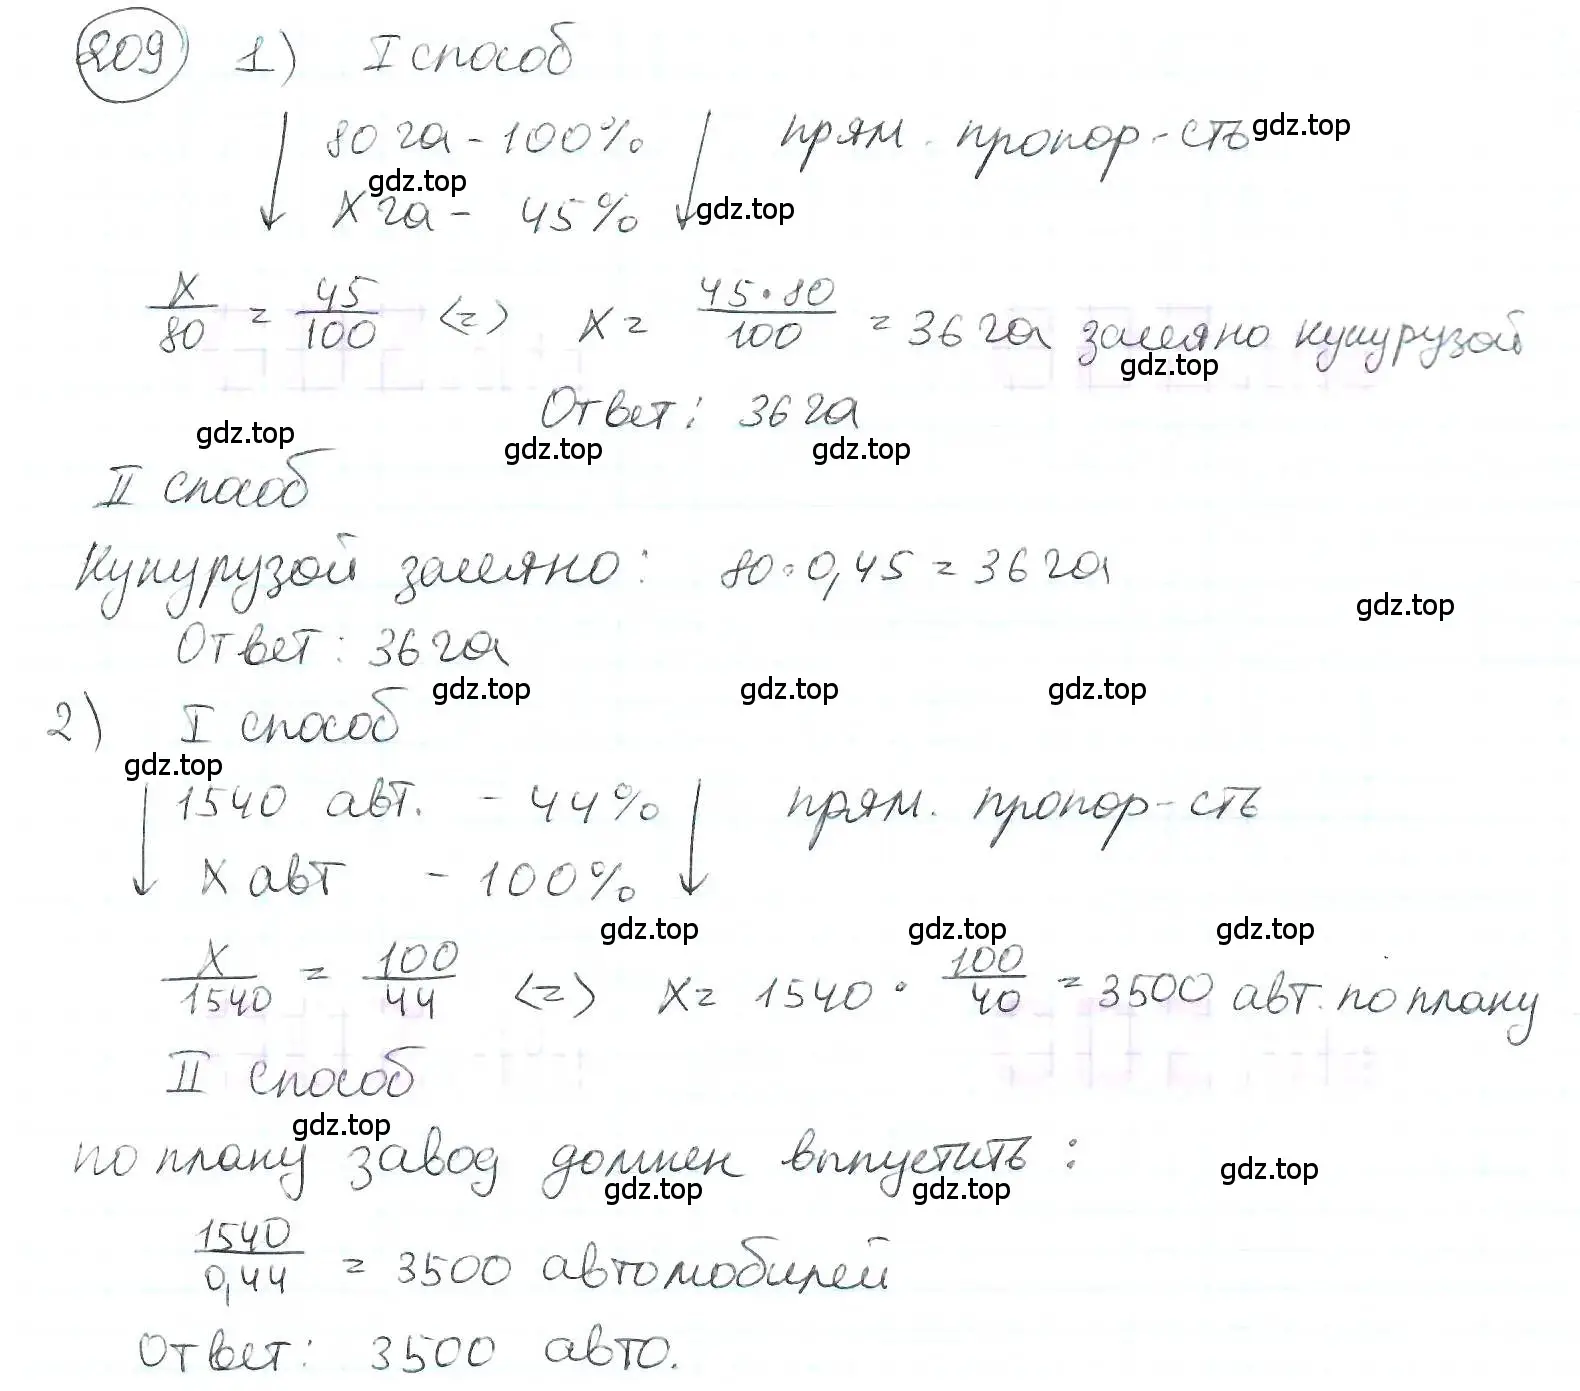 209 1) I способ
80 га - 100% прям. пропор-сть gdz.top
gdz.top
x га - 45% gdz.top
x/80 = 45/100 <=> x = 45·80/100 = 36 га засеяно кукурузой
gdz.top
Ответ: 36 га
gdz.top gdz.top gdz.top
II способ
Кукурузой засеяно: 80·0,45 = 36 га
gdz.top
Ответ: 36 га
gdz.top gdz.top gdz.top
2) I способ
gdz.top
1540 авт. - 44% прям. пропор-сть
x авт - 100%
gdz.top gdz.top gdz.top
x/1540 = 100/44 <=> x = 1540 · 100/40 = 3500 авт. по плану
II способ
gdz.top
по плану завод должен выпустить:
gdz.top gdz.top gdz.top
1540/0,44 = 3500 автомобилей
Ответ: 3500 авто.